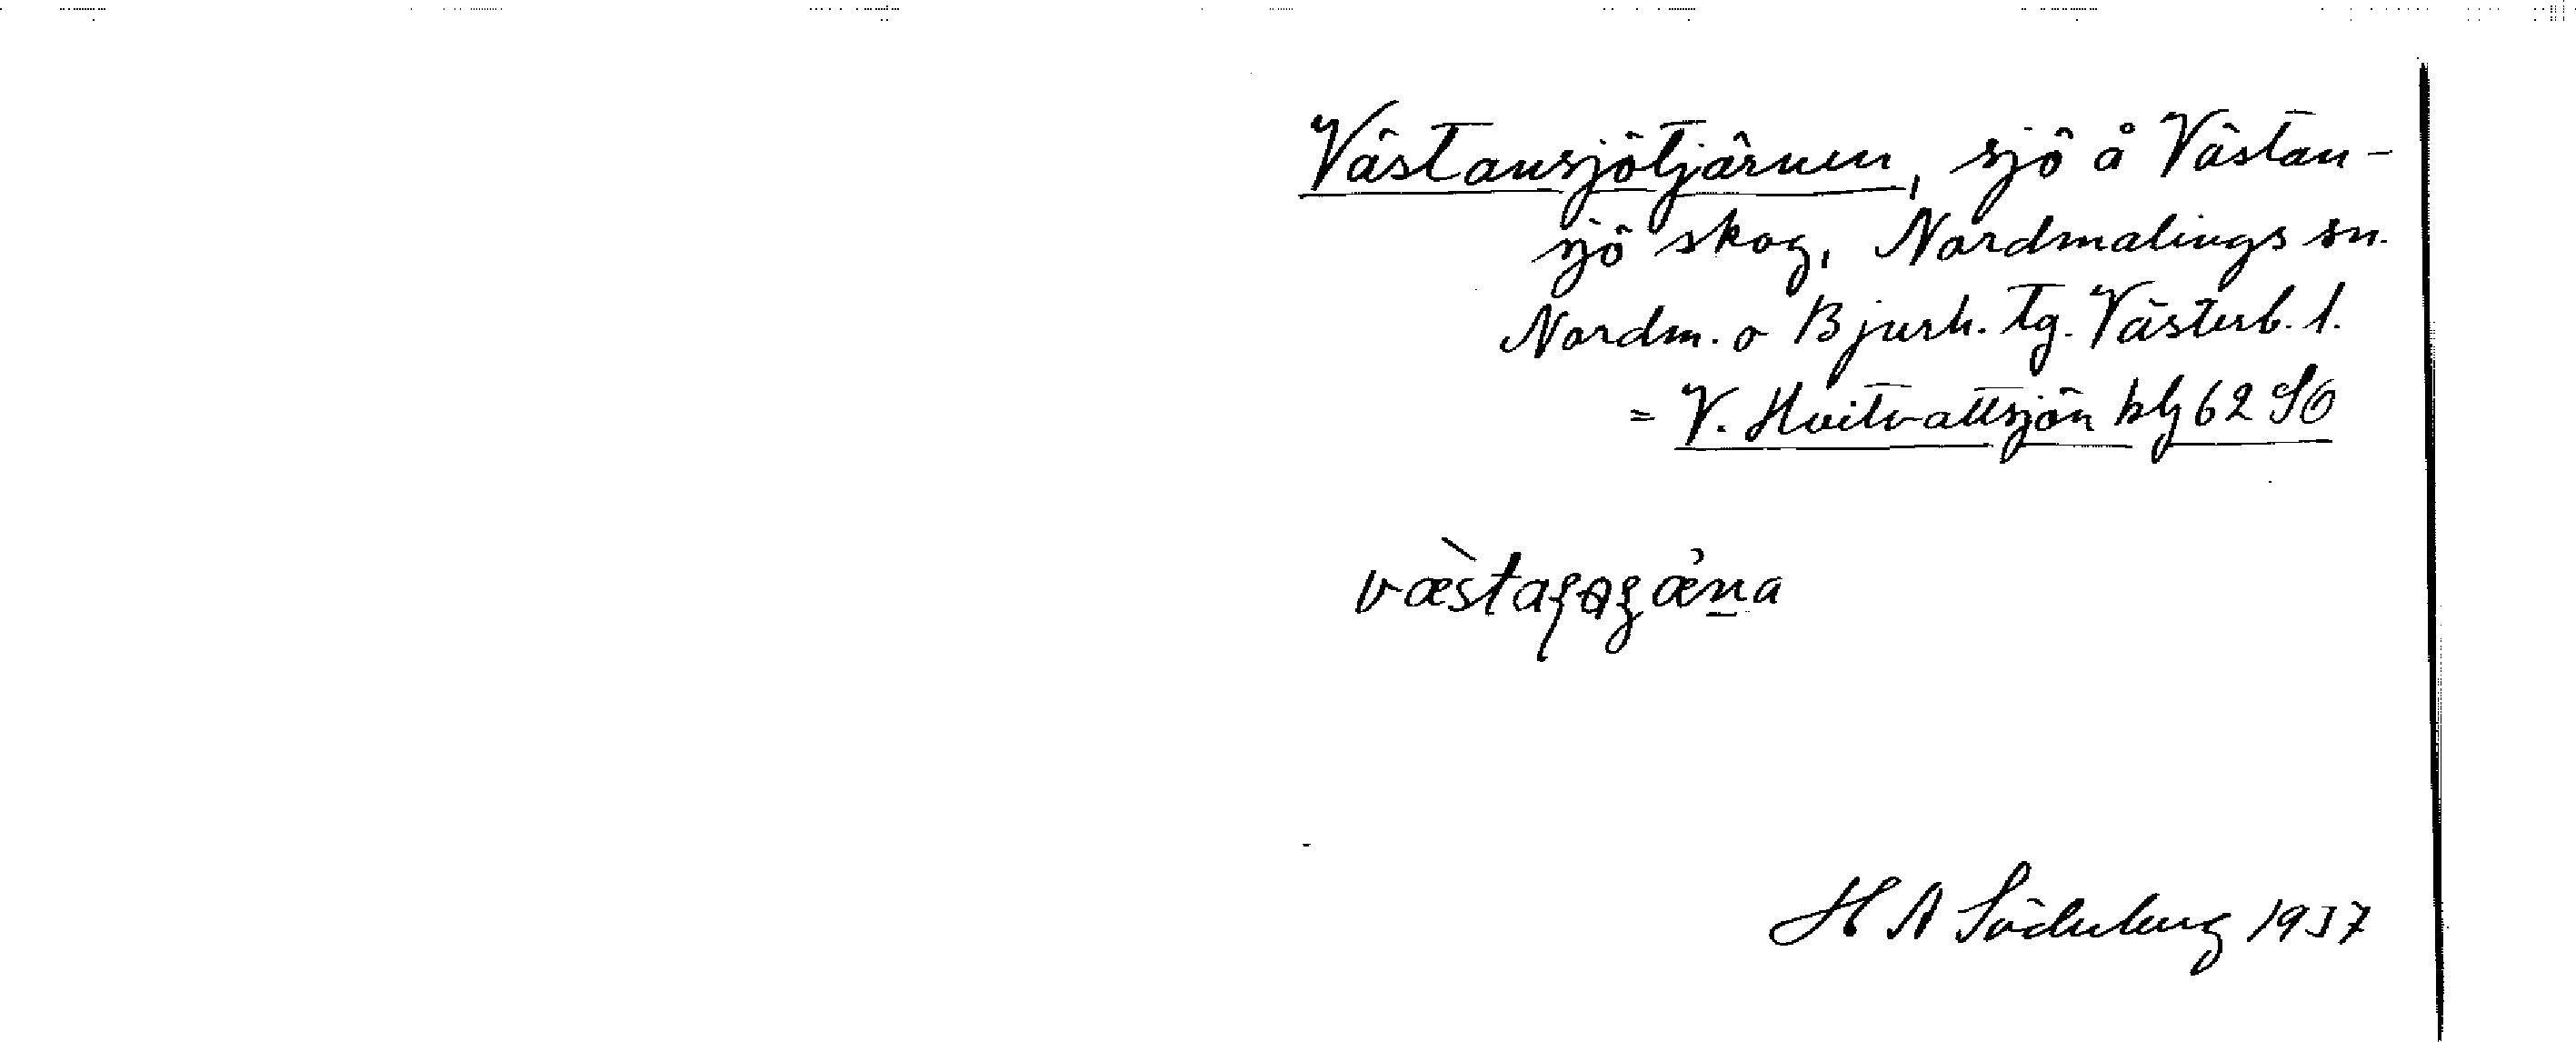 Västansjötjärnen, sjö å Västan-
sjö skog, Nordmalings sn.
Nordm. o Bjurh. tg. Västerb. l.
= V. Hvitvattsjön blj 62 SO
H A Söderberg 1937